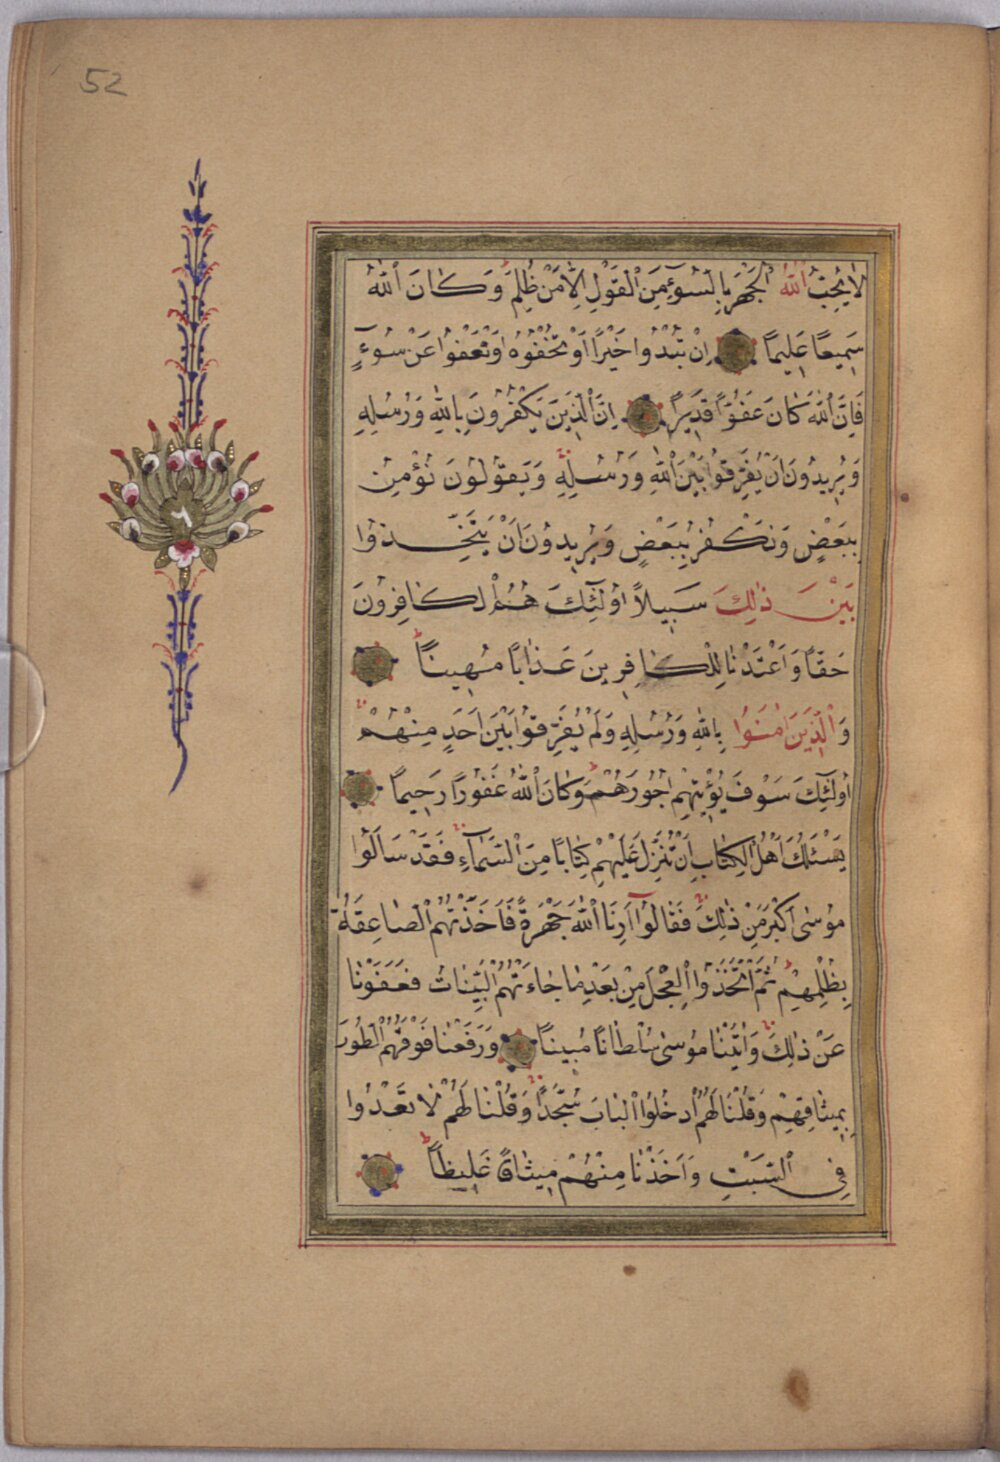 52
لَا يُحِبُّ اللّٰهُ الْجَهْرَ بِالسُّوٓءِ مِنَ الْقَوْلِ اِلَّا مَنْ ظُلِمَ وَكَانَ اللّٰهُ
سَمِيعًا عَلِيمًا اِنْ تُبْدُوا خَيْرًا اَوْ تُخْفُوهُ اَوْ تَعْفُوا عَنْ سُوٓءٍ
فَاِنَّ اللّٰهَ كَانَ عَفُوًّا قَدِيرًا اِنَّ الَّذِينَ يَكْفُرُونَ بِاللّٰهِ وَرُسُلِهِ
وَيُرِيدُونَ اَنْ يُفَرِّقُوا بَيْنَ اللّٰهِ وَرُسُلِهِ وَيَقُولُونَ نُؤْمِنُ
بِبَعْضٍ وَنَكْفُرُ بِبَعْضٍ وَيُرِيدُونَ اَنْ يَتَّخِذُوا
بَيْنَ ذٰلِكَ سَبِيلًا اُولٰٓئِكَ هُمُ الْكَافِرُونَ
حَقًّا وَاَعْتَدْنَا لِلْكَافِرِينَ عَذَابًا مُهِينًا
وَالَّذِينَ اٰمَنُوا بِاللّٰهِ وَرُسُلِهِ وَلَمْ يُفَرِّقُوا بَيْنَ اَحَدٍ مِنْهُمْ
اُولٰٓئِكَ سَوْفَ يُؤْتِيهِمْ اُجُورَهُمْ وَكَانَ اللّٰهُ غَفُورًا رَحِيمًا
يَسْئَلُكَ اَهْلُ الْكِتَابِ اَنْ تُنَزِّلَ عَلَيْهِمْ كِتَابًا مِنَ السَّمَآءِ فَقَدْ سَاَلُوا
مُوسٰى اَكْبَرَ مِنْ ذٰلِكَ فَقَالُوٓا اَرِنَا اللّٰهَ جَهْرَةً فَاَخَذَتْهُمُ الصَّاعِقَةُ
بِظُلْمِهِمْ ثُمَّ اتَّخَذُوا الْعِجْلَ مِنْ بَعْدِ مَا جَاءَتْهُمُ الْبَيِّنَاتُ فَعَفَوْنَا
عَنْ ذٰلِكَ وَاٰتَيْنَا مُوسٰى سُلْطَانًا مُبِينًا وَرَفَعْنَا فَوْقَهُمُ الطُّورَ
بِمِيثَاقِهِمْ وَقُلْنَا لَهُمُ ادْخُلُوا الْبَابَ سُجَّدًا وَقُلْنَا لَهُمْ لَا تَعْدُوا
فِى السَّبْتِ وَاَخَذْنَا مِنْهُمْ مِيثَاقًا غَلِيظًا
٦